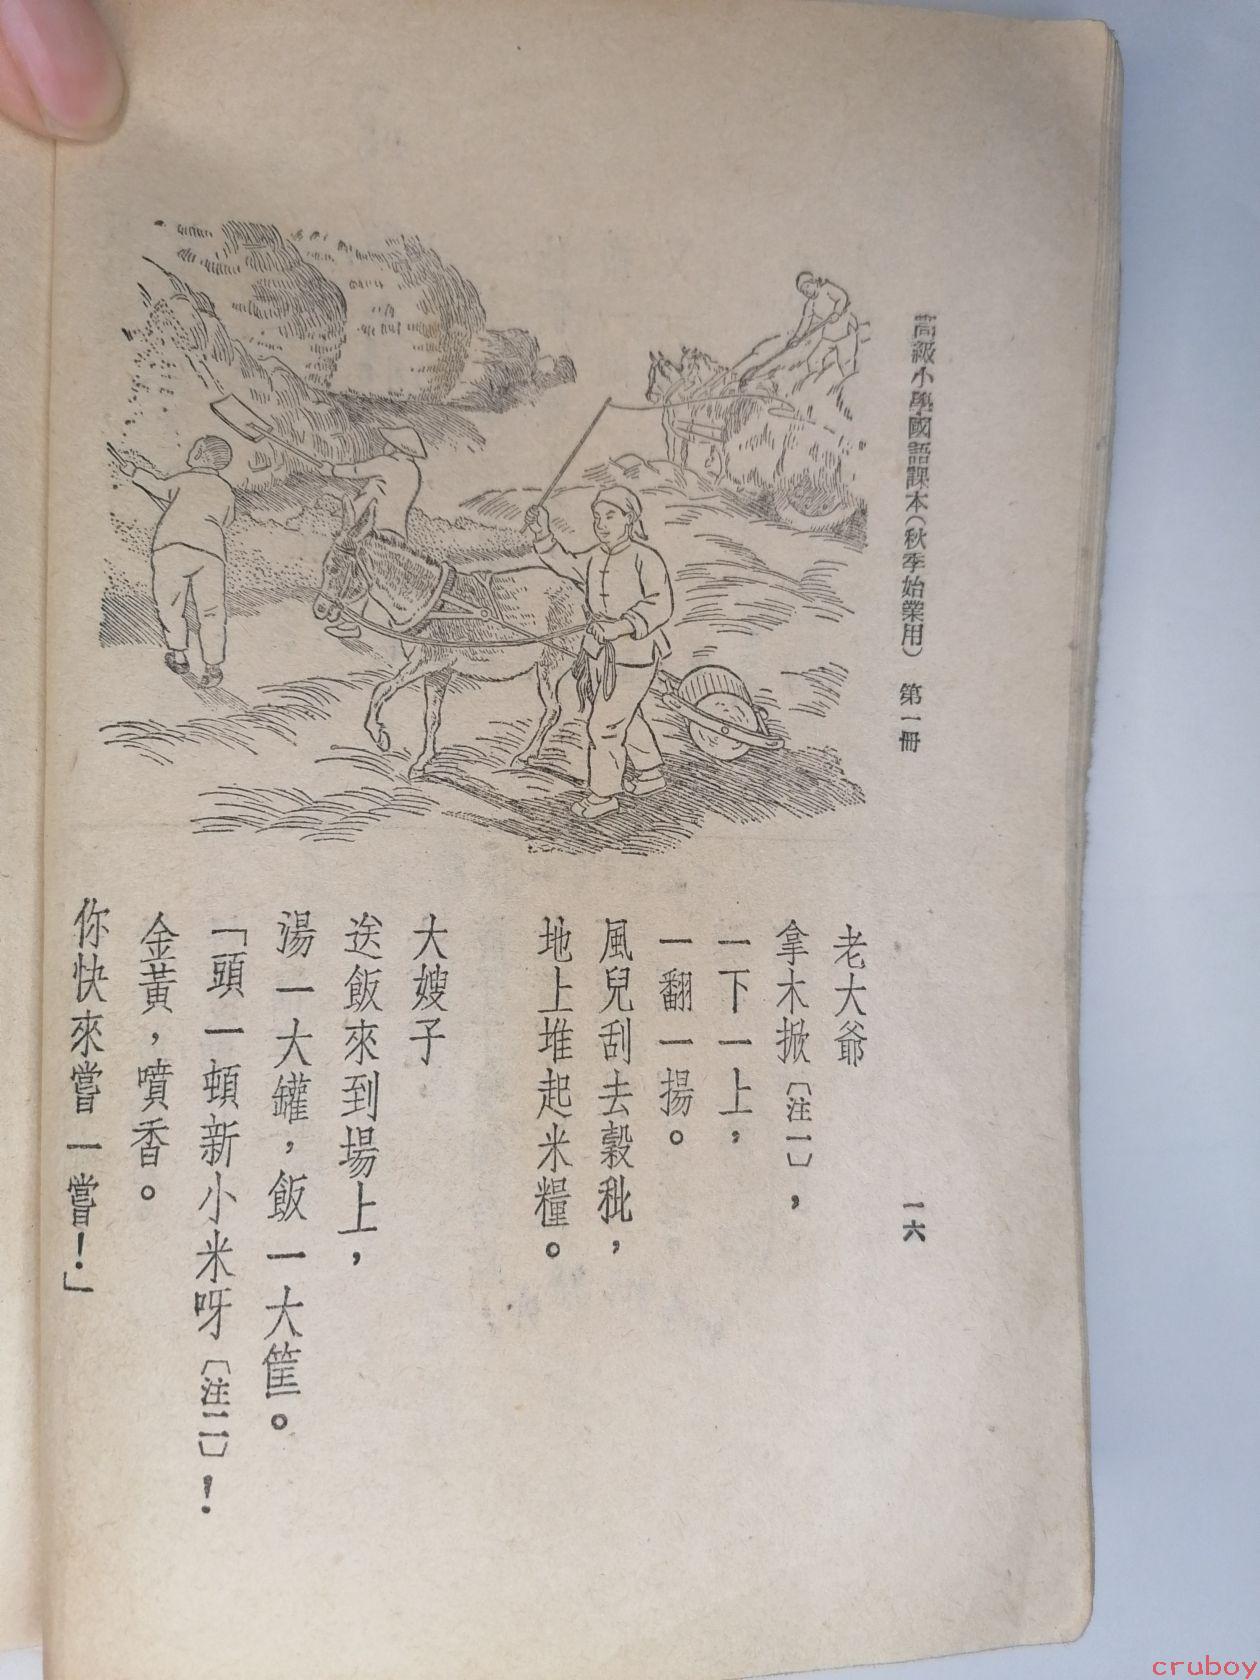 高級小學國語課本(秋季始業用) 第一冊
一六
老大爺
拿木掀〔注一〕，
一下一上，
一翻一揚。
風兒刮去穀秕，
地上堆起米糧。
大嫂子
送飯來到場上，
湯一大罐，飯一大筐。
「頭一頓新小米呀〔注二〕！
金黃，噴香。
你快來嘗一嘗！」
cruboy